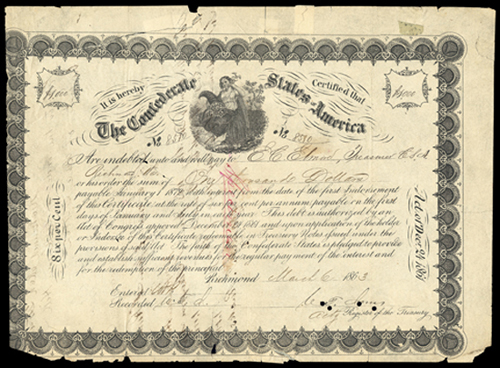 $1000
$1000
It is hereby Certified that
The Confederate States of America
No 8510 No 8510
Are indebted unto and will pay to E C Elmore Treasurer C.S.A
Richmond Va
or his order the sum of One Thousand Dollars
payable January 1 with interest from the date of the first Indorsement
of this Certificate at the rate of six per cent. per annum payable on the first
days of January and July in each year. This debt is authorized by an
Act of Congress approved December 24 1861 and upon application of the holder
or Indorsee of this Certificate
provisions of said Act. The faith of the Confederate States is pledged to provide
and establish sufficient revenues for the regular payment of the interest and
for the redemption of the principal
Richmond March 6 1863
Entered
Recorded
Act. Register of the Treasury
Per Cent
Act of Decr 24 1861